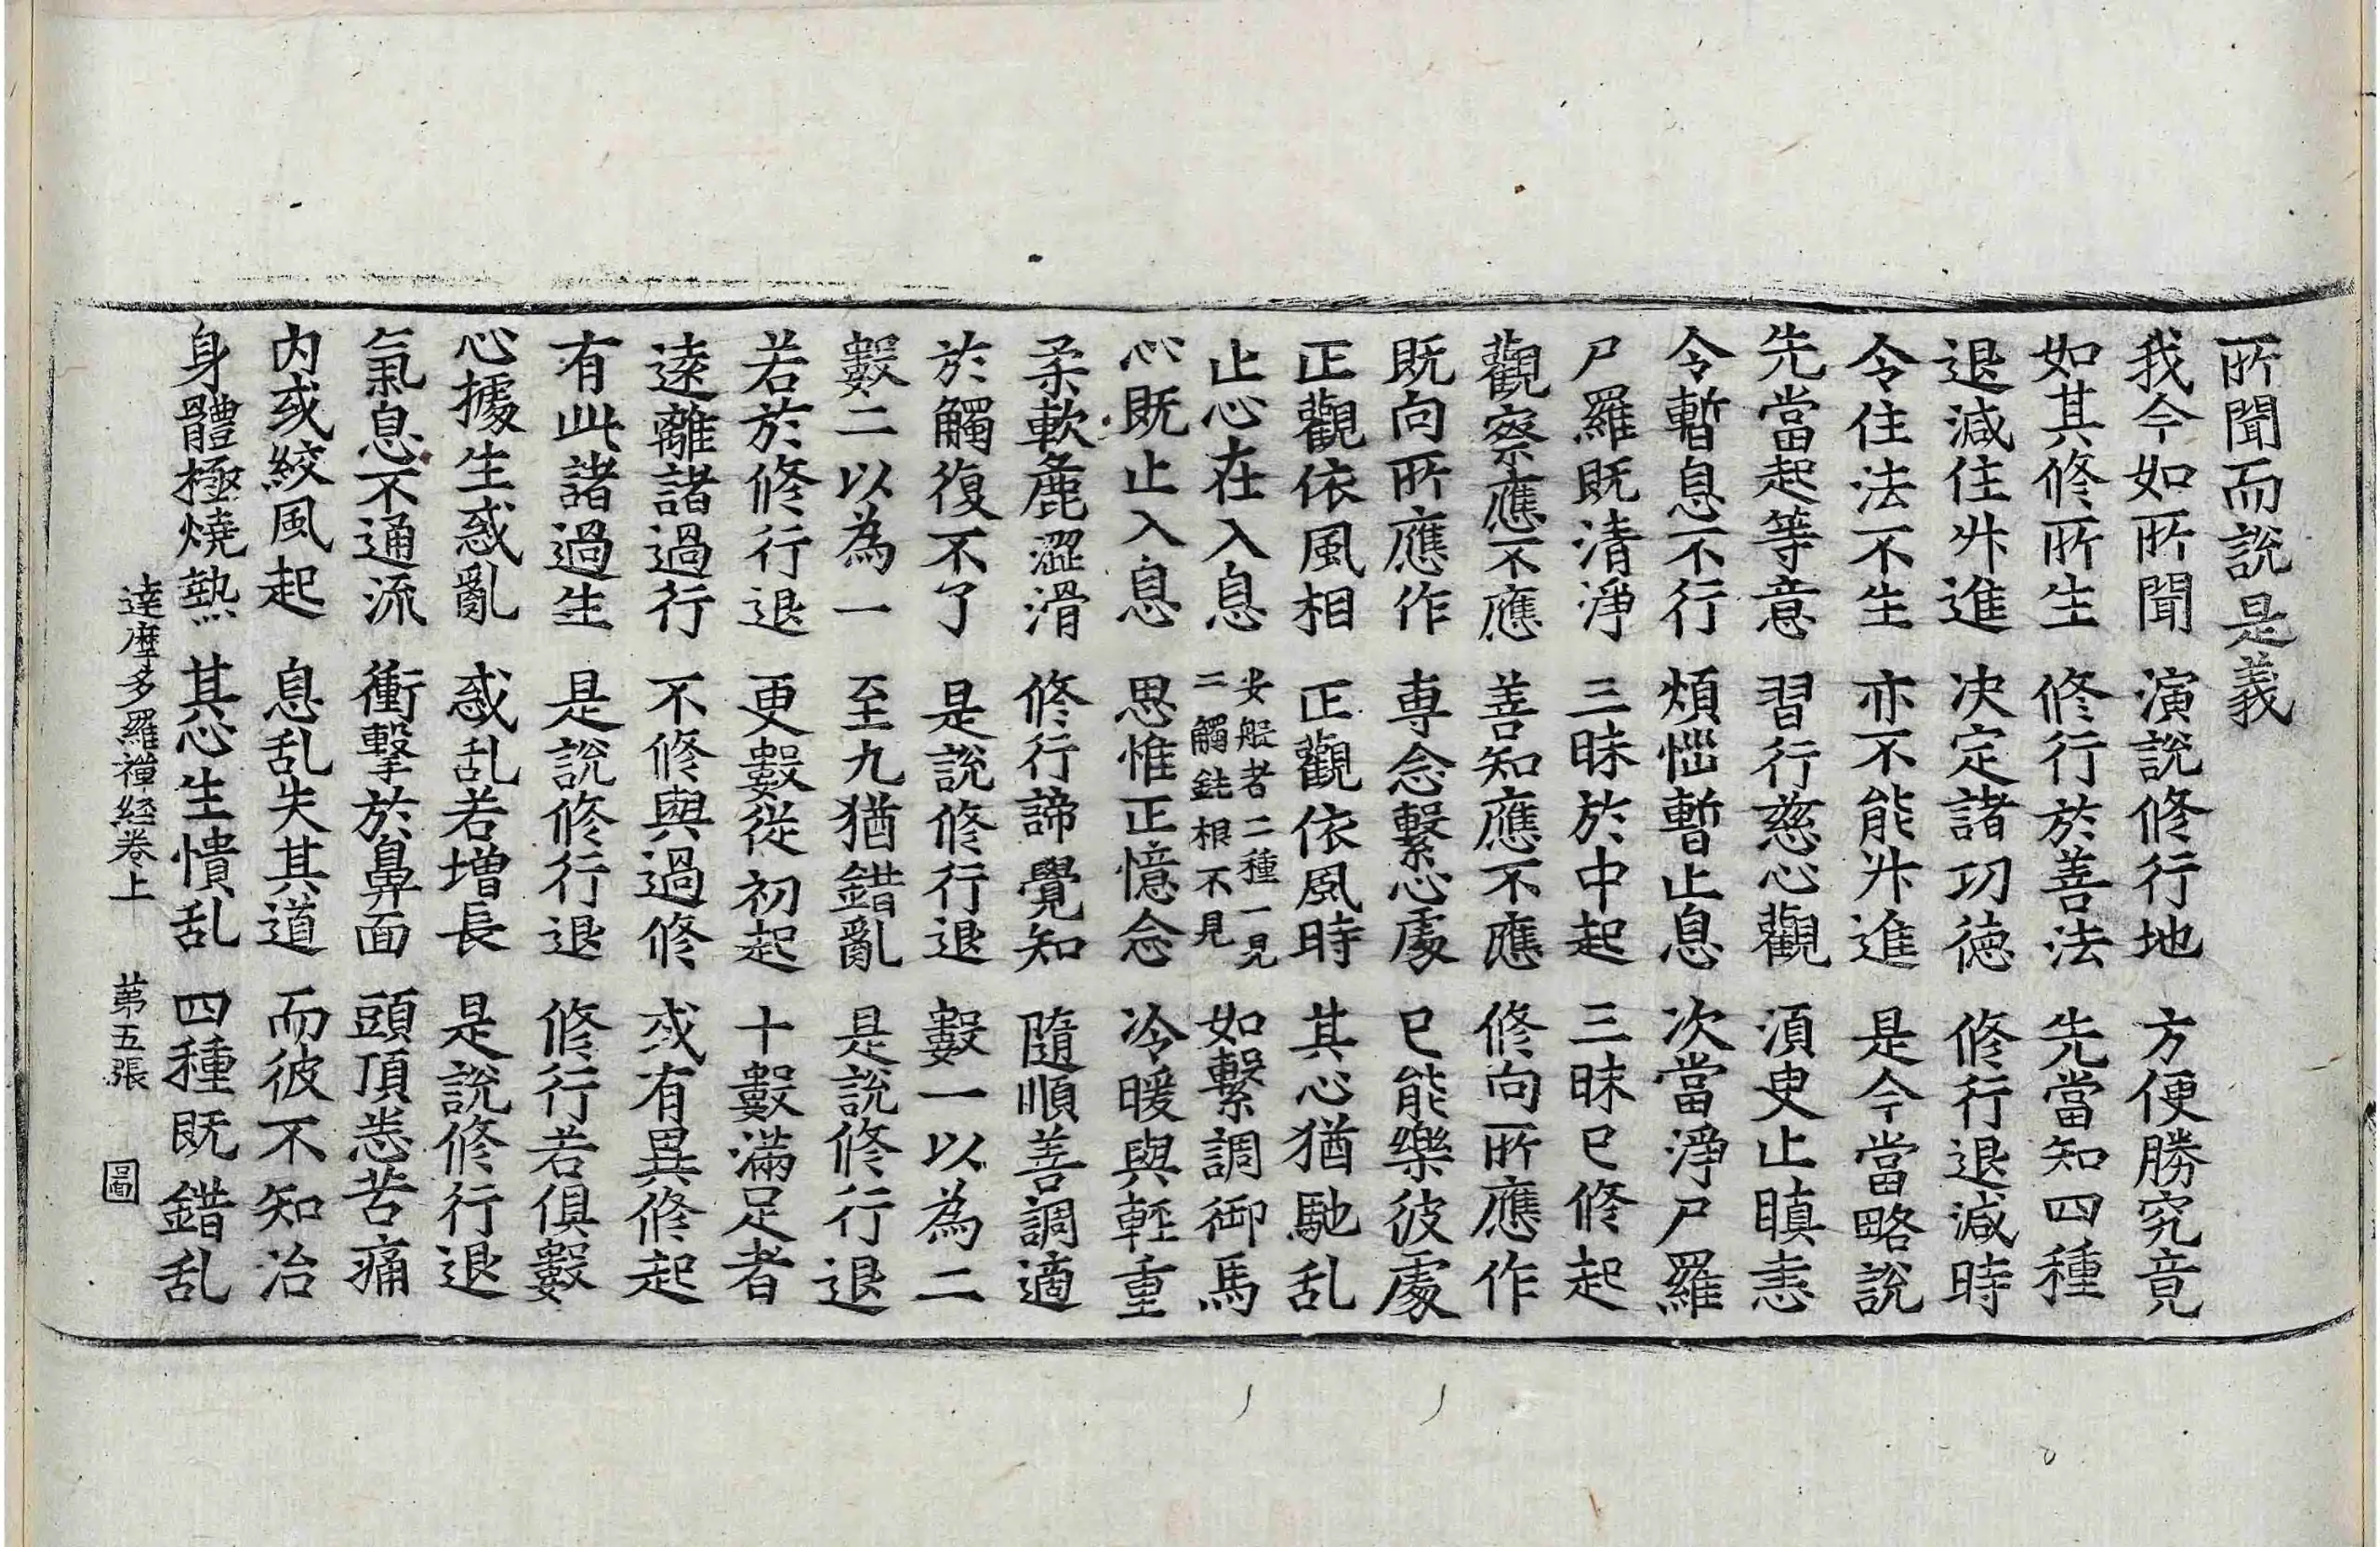 所聞而說是義
我今如所聞 演說修行地 方便勝究竟
如其修所生 修行於善法 先當知四種
退減住升進 决定諸功德 修行退減時
令住法不生 亦不能升進 是今當略說
先當起等意 習行慈心觀 須臾止瞋恚
令暫息不行 煩惱暫止息 次當淨尸羅
尸羅既清淨 三昧於中起 三昧已修起
觀察應不應 善知應不應 修向所應作
既向所應作 專念繫心處 已能樂彼處
正觀依風相 正觀依風時 其心猶馳乱
止心在入息 安般者二種一見二觸鈍根不見 如繫調御馬
心既止入息 思惟正憶念 冷暖與輕重
柔軟麁澀滑 修行諦覺知 隨順善調適
於觸復不了 是說修行退 數一以為二
數二以為一 至九猶錯亂 是說修行退
若於修行退 更數從初起 十數滿足者
遠離諸過行 不修與過修 或有異修起
有此諸過生 是說修行退 修行若俱數
心據生惑亂 惑乱若增長 是說修行退
氣息不通流 衝擊於鼻面 頭頂悉苦痛
內或絞風起 息乱失其道 而彼不知治
身體極燒熱 其心生憒乱 四種既錯乱
達摩多羅禪経卷上 苐五張 圖